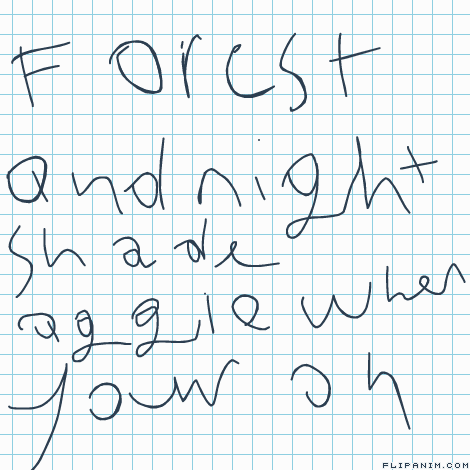 Forest
and night
shade
aggie when
your on
FLIPANIM.COM